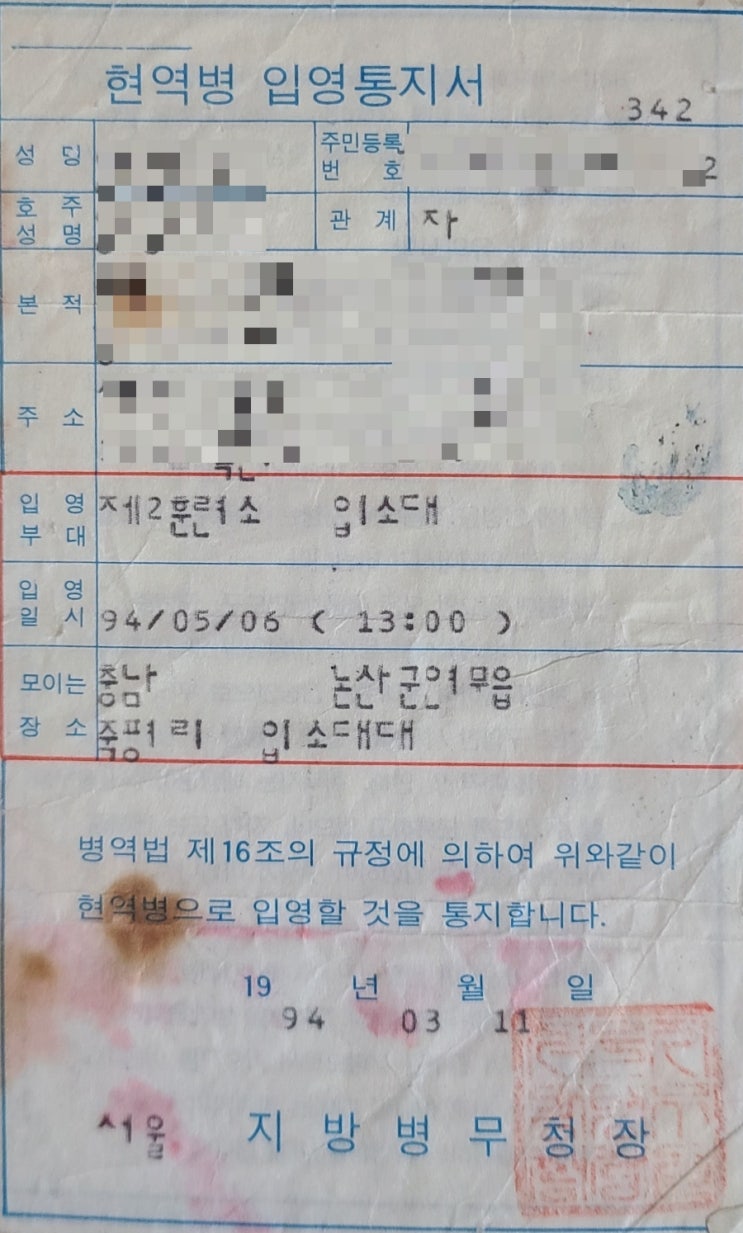 현역병 입영통지서
342
성 명
주민등록
번 호
2
호 주
성 명
관 계 자
본 적
주 소
입 영
부 대
제2훈련소 입소대
입 영
일 시
94/05/06 ( 13:00 )
모이는
장 소
충남 논산군연무읍
죽평리 입소대대
병역법 제16조의 규정에 의하여 위와같이
현역병으로 입영할 것을 통지합니다.
19 년 월 일
94 03 11
서울 지방병무청장